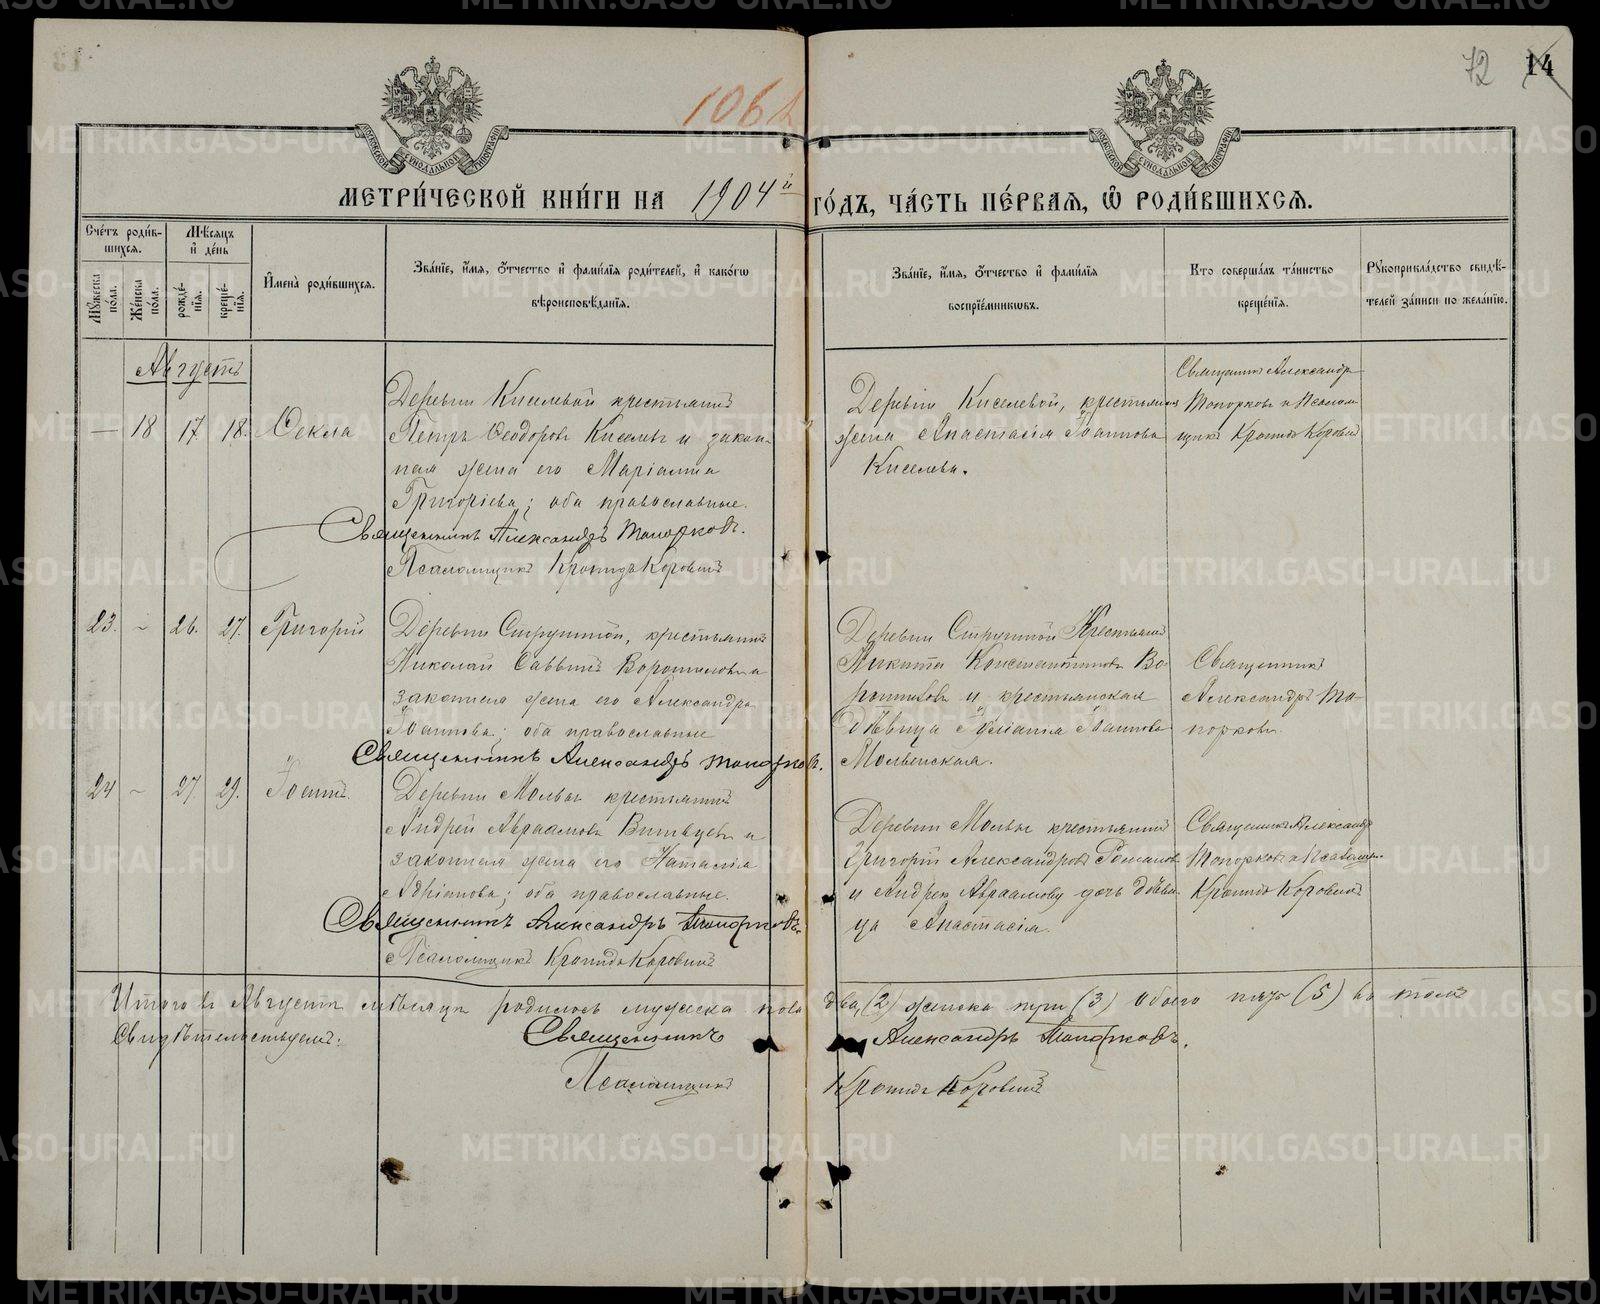 13
106
72
14
МОСКОВСКОЙ СѴНОДАЛЬНОЙ ТИПОГРАФІИ
МОСКОВСКОЙ СѴНОДАЛЬНОЙ ТИПОГРАФІИ
МЕТРИ́ЧЕСКОЙ КНИ́ГИ НА 1904й ГО́ДЪ, ЧА́СТЬ ПЕ́РВАЯ, Ѡ҆ РОДИ́ВШИХСЯ.
Сче́тъ роди́в-
шихся.
Мꙋ́жеска
по́ла.
Же́нска
по́ла.
Мѣ́сяцъ
и҆ де́нь
рожде́-
нїя.
креще́-
нїя.
И҆мена̀ роди́вшихся.
Зва́нїе, и҆́мя, ѻ҆́тчество и҆ фами́лїя роди́телей, и҆ како́гѡ
вѣроисповѣ́данїя.
Зва́нїе, и҆́мя, ѻ҆́тчество и҆ фами́лїя
воспрїе́мниковъ.
Кто соверша́лъ та́инство
креще́нїя.
Рꙋкоприкла́дство свидѣ́-
телей за́писи по жела́нїю.
Августъ
— 18 17 18. Ѳекла
Деревни Киселевой крестьянинъ
Петръ Ѳеодоровъ Киселевъ и закон-
ная жена его Маріамна
Григоріева; оба православные.
Священникъ Александръ Топорковъ.
Псаломщикъ Кронидъ Коровинъ
Деревни Киселевой, крестьянина
жена Анастасія Іоаннова
Киселева.
Священникъ Александръ
Топорковъ и Псалом-
щикъ Кронидъ Коровинъ
23. – 26. 27. Григорій
Деревни крестьянинъ
Николай Саввинъ и
законная жена его Александра
Іоаннова; оба православные
Священникъ Александръ Топорковъ.
Деревни Крестьянинъ
Никита Константиновъ
и крестьянская
дѣвица Іуліанія Іоаннова
Священникъ
Александръ То-
порковъ
24 – 27 29. Іоаннъ.
Деревни крестьянинъ
Андрей Авраамовъ и
законная жена его Наталія
Адріанова; оба православные.
Священникъ Александръ Топорковъ.
Псаломщикъ Кронидъ Коровинъ
Деревни крестьянинъ
Григорій Александровъ
и Андрея Авраамова дочь дѣви-
ца Анастасія.
Священникъ Александръ
Топорковъ и Псаломщикъ
Кронидъ Коровинъ
Итого въ Августѣ мѣсяцѣ родилось мужеска пола два (2) женска три (3) обоего пять (5) въ томъ
Свидѣтельствуемъ:
Священникъ Александръ Топорковъ.
Псаломщикъ Кронидъ Коровинъ
METRIKI.GASO-URAL.RU